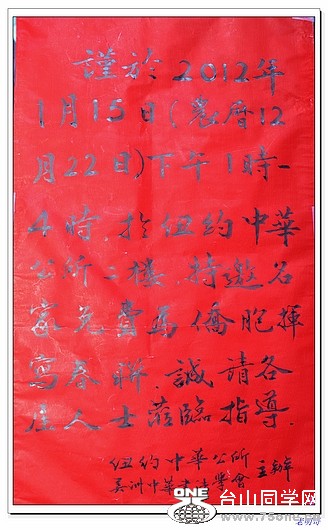 謹於2012年
1月15日(農曆12
月22日)下午1時-
4時,於纽約中華
公所二樓,特邀名
家免費為僑胞揮
寫春聯,誠請各
屆人士蒞臨指導.
纽約中華公所
美洲中華書法學會
主辦
ONE
台山同学网
www.75one.com